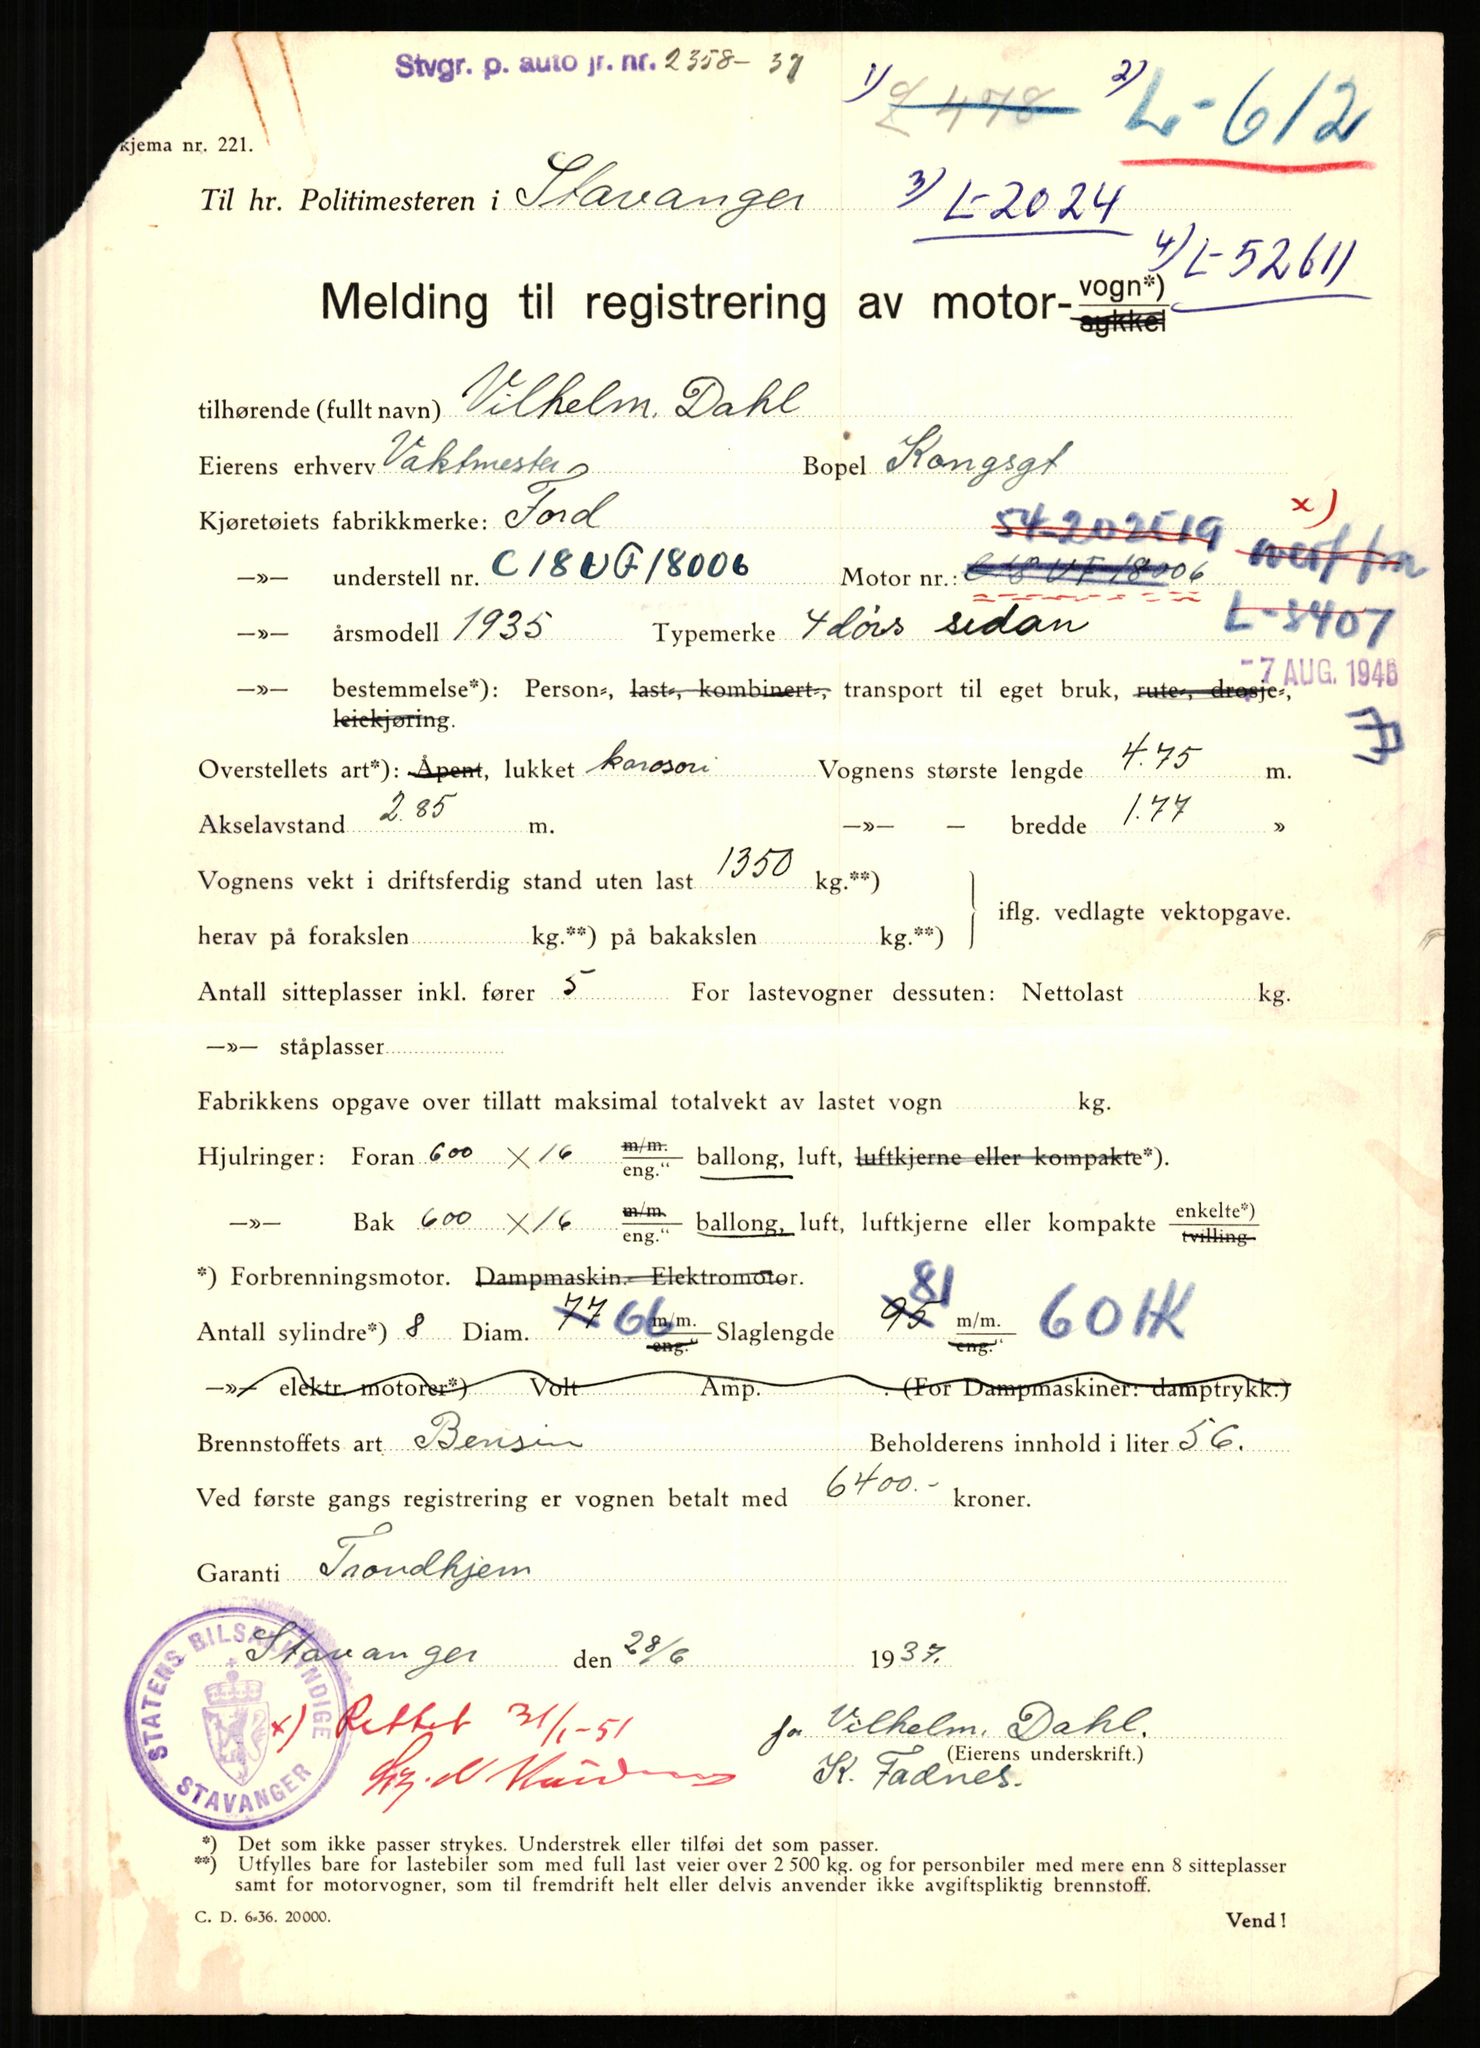 Stvgr. p. auto jr. nr. 2358-37
1) L 478
2) L-612
kjema nr. 221.
Til hr. Politimesteren i Stavanger
3) L-2024
4) L-52611
Melding til registrering av motor-vogn*)
sykkel
tilhørende (fullt navn) Vilhelm. Dahl
Eierens erhverv Vaktmester Bopel Kongsgt
Kjøretøiets fabrikkmerke: Ford
54-202519 x)
—»— understell nr. C18UF18006 Motor nr.: C18UF18006
L-8407
—»— årsmodell 1935 Typemerke 4 dørs sedan
-7 AUG. 1946
—»— bestemmelse*): Person-, last-, kombinert-, transport til eget bruk, rute-, drosje-,
leiekjøring.
Overstellets art*): Åpent, lukket karosori Vognens største lengde 4.75 m.
Akselavstand 2.85 m. —»— — bredde 1.77 »
Vognens vekt i driftsferdig stand uten last 1350 kg.**)
iflg. vedlagte vektopgave.
herav på forakslen kg.**) på bakakslen kg.**)
Antall sitteplasser inkl. fører 5 For lastevogner dessuten: Nettolast kg.
—»— ståplasser
Fabrikkens opgave over tillatt maksimal totalvekt av lastet vogn kg.
Hjulringer: Foran 600 × 16 m/m. eng." ballong, luft, luftkjerne eller kompakte*).
—»— Bak 600 × 16 m/m. eng." ballong, luft, luftkjerne eller kompakte enkelte*) tvilling
*) Forbrenningsmotor. Dampmaskin.- Elektromotor.
Antall sylindre*) 8 Diam. 77 66 m/m. eng." Slaglengde 95 81 m/m. eng." 60 HK
—»— elektr. motorer*) Volt Amp. . (For Dampmaskiner: damptrykk.)
Brennstoffets art Bensin Beholderens innhold i liter 56.
Ved første gangs registrering er vognen betalt med 6400.- kroner.
Garanti Trondhjem
Stavanger den 28/6 1937.
STATENS BILSAKKYNDIGE STAVANGER
x) Rettet 31/1-51
for Vilhelm. Dahl.
(Eierens underskrift.)
K. Fadnes.
*) Det som ikke passer strykes. Understrek eller tilføi det som passer.
**) Utfylles bare for lastebiler som med full last veier over 2 500 kg. og for personbiler med mere enn 8 sitteplasser
samt for motorvogner, som til fremdrift helt eller delvis anvender ikke avgiftspliktig brennstoff.
C. D. 6-36. 20000.
Vend!